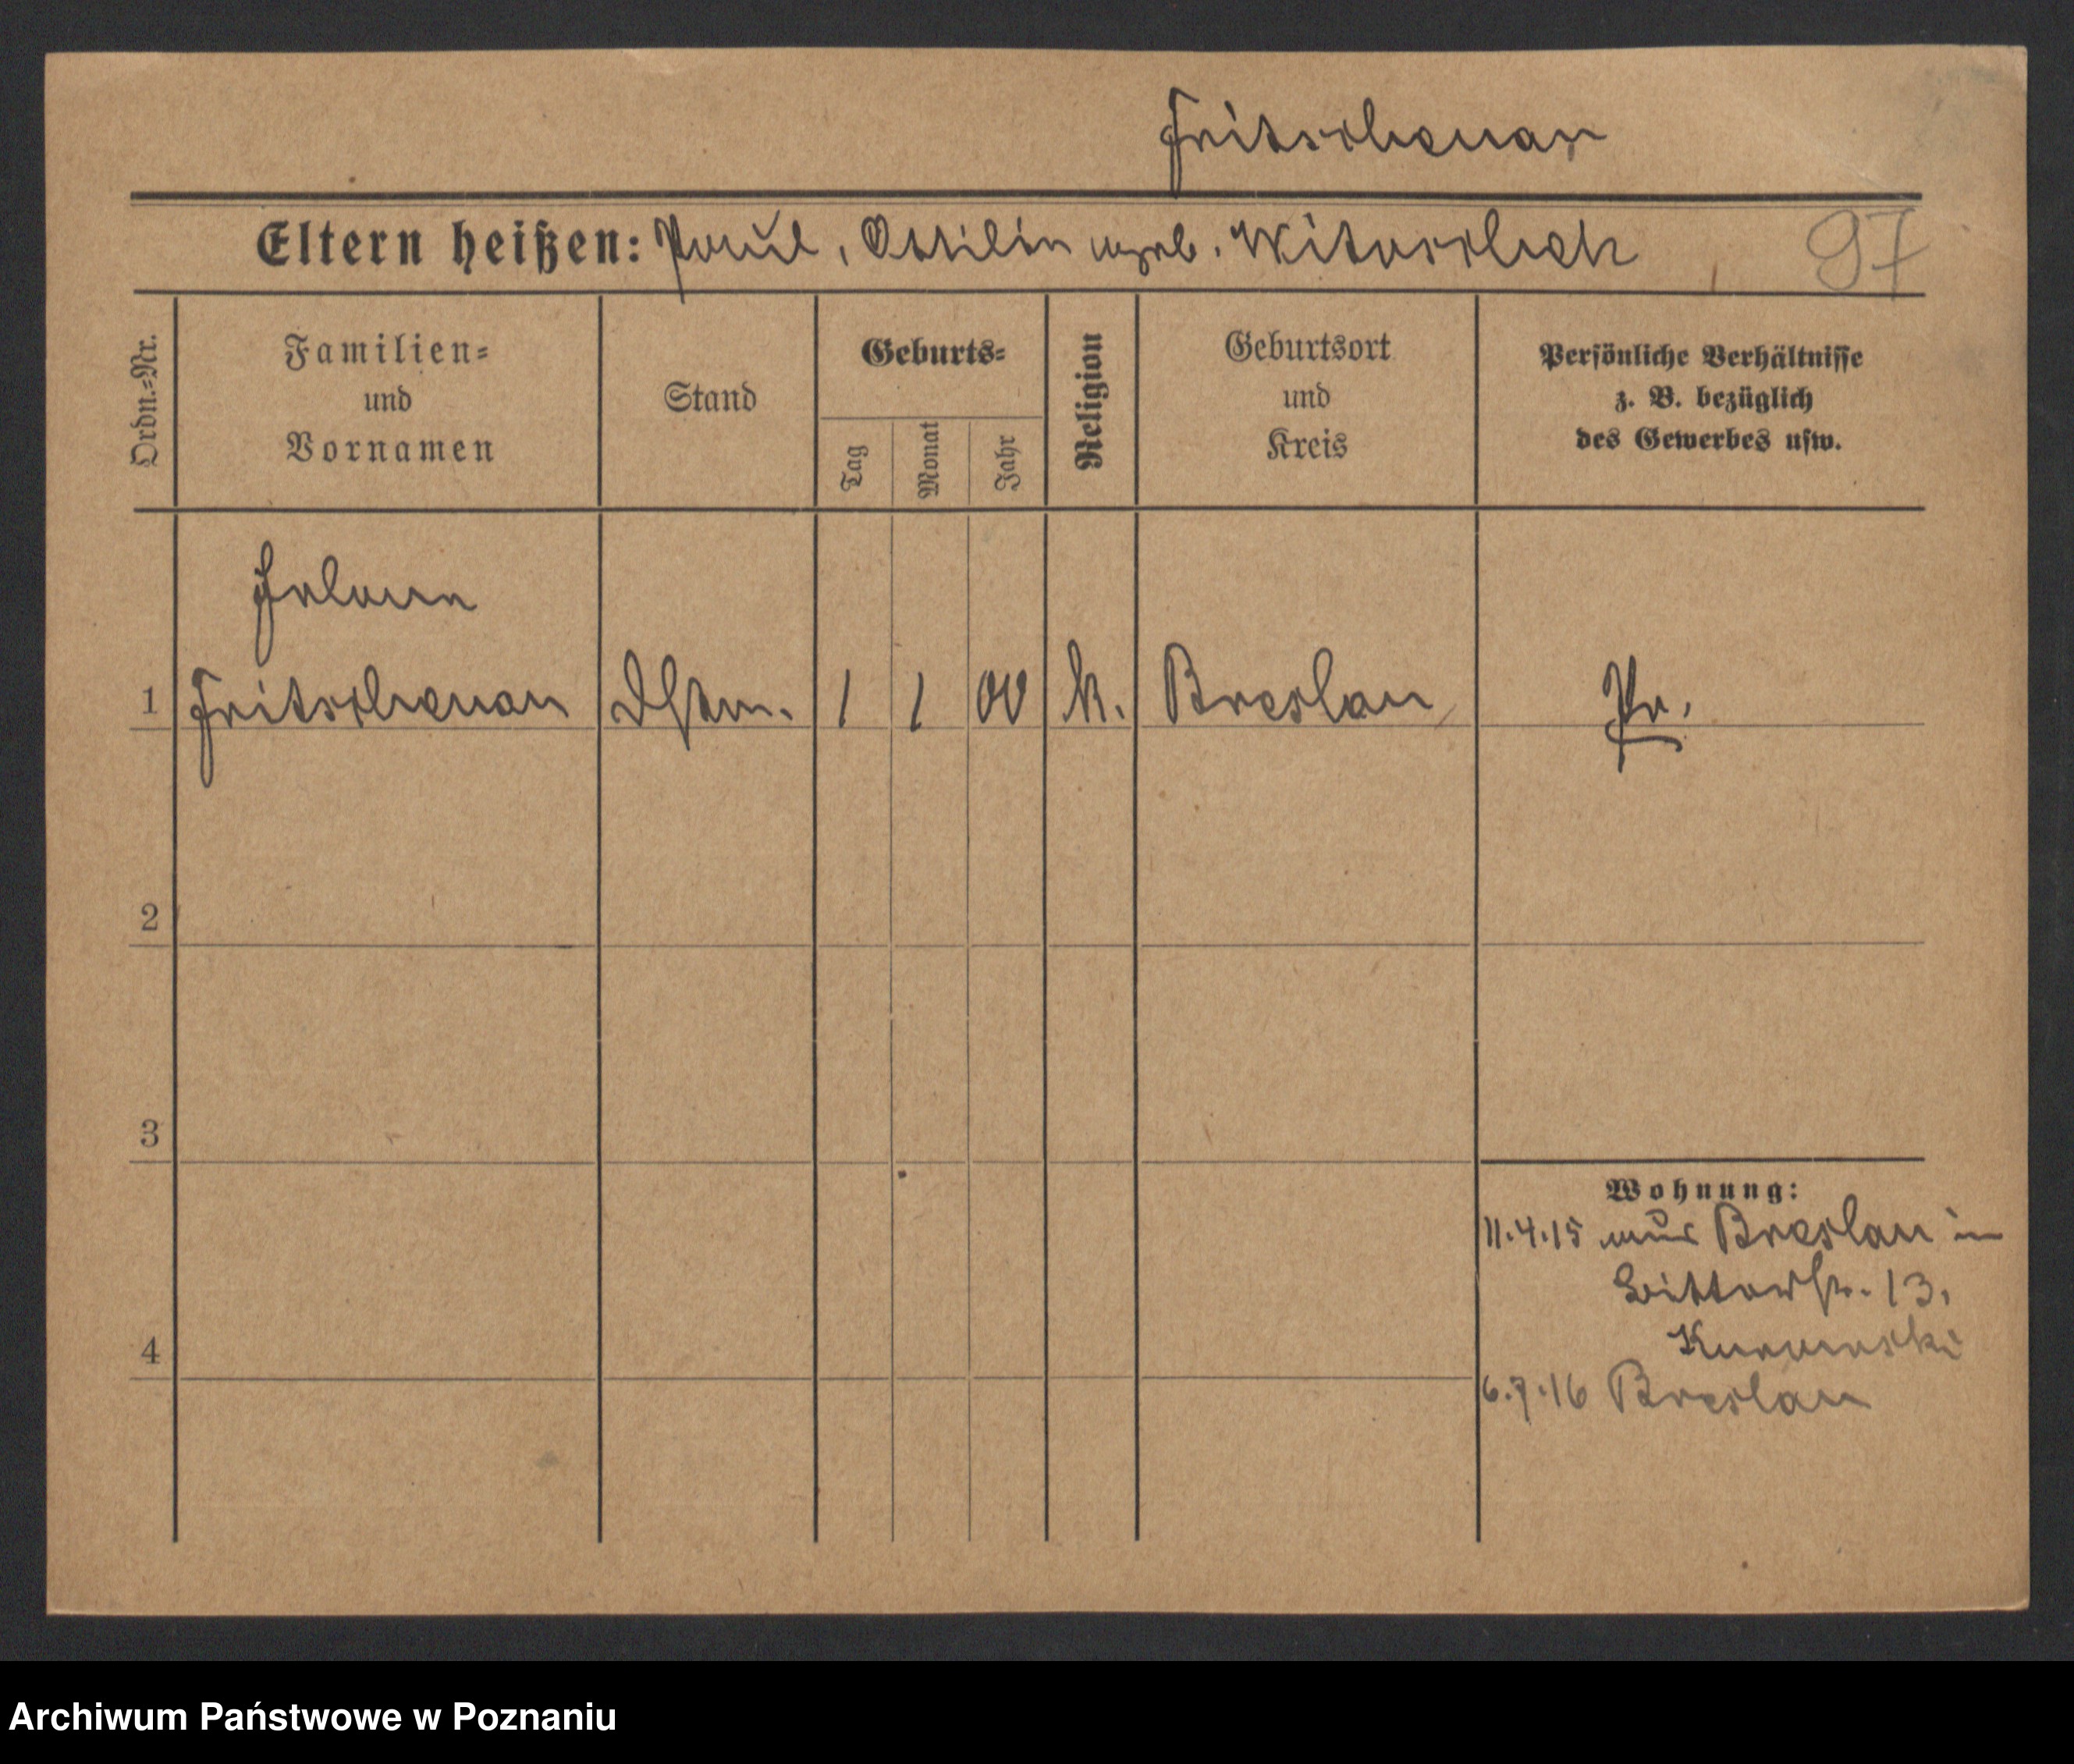 Fritschenan
Eltern heißen: Paul, Ottilie
97
Ordn.=Nr.
Familien=
und
Vornamen
Stand
Geburts=
Tag
Monat
Jahr
Religion
Geburtsort
und
Kreis
Persönliche Verhältnisse
z. B. bezüglich
des Gewerbes usw.
Helene
1 Fritschenan Dstm. 1 1 00 k. Breslau Pr.
2
3
4
Wohnung:
11.4.15 aus Breslau in
13.
6.7.16 Breslau
Archiwum Państwowe w Poznaniu